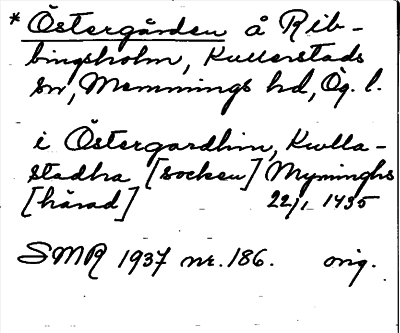 * Östergården å Rib-
bingsholm, Kullerstads
sn, Memmings hd, Ög. l.
i Östergardhin, Kwlla-
stadha [socken] Myminghs
[härad] 22/1 1435
SMR 1937 nr. 186. orig.